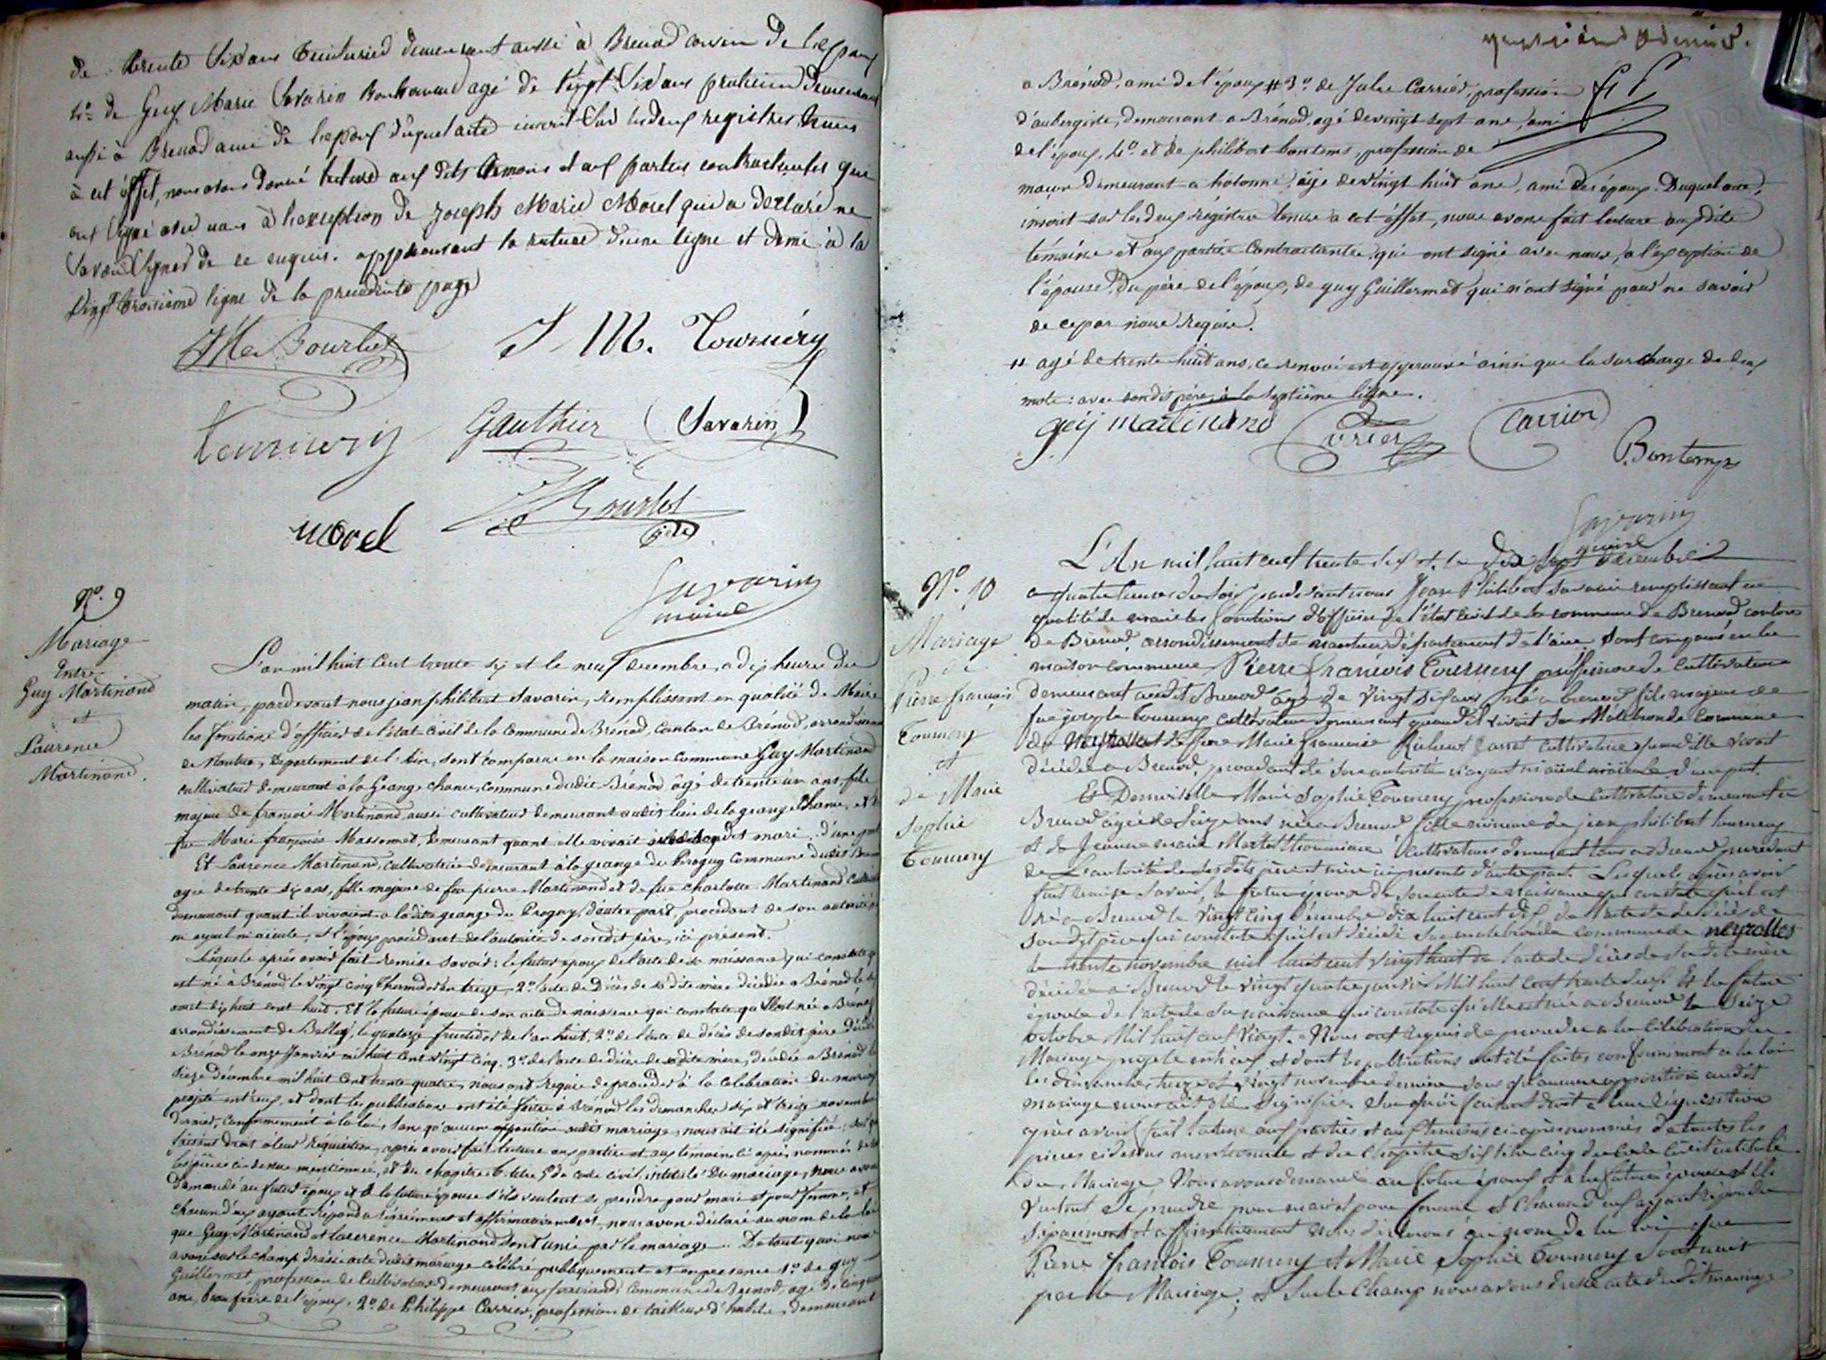 de trente six ans teinturier demeurant aussi à Brenod cousin de l'epoux
4.º de Guy Marie Savarin Bonhomme agé de vingt six ans praticien demeurant
aussi à Brenod ami de l'epoux duquel acte inscrit sur les deux registres tenus
à cet éffet, nous avons donné lecture aux dits témoins et aux parties contractantes qui
ont signé avec nous à l'exception de joseph Marie Morel qui a declaré ne
savoir signer de ce enquis. approuvant la rature d'une ligne et demie à la
vingt troisième ligne de la precedente page
Bourbet
J. M. Tournéry
tournery
Gauthier
Savarin
morel
Bourlet
Savarin
maire
Nº. 9
Mariage
Entre
Guy Martinand
et
Laurence
Martinand.
L'an mil huit cent trente six et le neuf Decembre, a dix heures du
matin, pardevant nous jean philibert Savarin, remplissant en qualité de Maire
les fonctions d'officier de l'état civil de la Commune de Brénod, Canton de Brénod, arrondissement
de Nantua, Département de l'Ain, sont comparus en la maison commune Guy Martinand
cultivateur demeurant à la Grange chanu, commune dudit Brénod âgé de trente un ans, fils
majeur de françois Martinand, aussi cultivateur demeurant audit lieu de la grange chanu, et de
feu Marie françoise Massonnet, demeurant quant elle vivait avec son dit mari, d'une part
Et Laurence Martinand, cultivatrice demeurant à la grange du Progny Commune dudit Brenod
agée de trente six ans, fille majeure de feu pierre Martinand et de feue charlotte Martinand
demeurant quant ils vivaient a la dite grange du Progny, d'autre part, procedant de son autorité
ni ayeul ni aieule, et l'époux procédant de l'autorité de son dit père, ici présent.
Lesquels après avoir fait remise savoir: le futur epoux de l'acte de sa naissance qui constate qu'il
est né à Brénod le vingt cinq thermidor an treize, 2.º l'acte de décès de sa dite mère, décédée a Brénod le
août dix huit cent huit. Et la future épouse de son acte de naissance qui constate qu'elle est née a Brénod
arrondissement de Belley, le quatorze fructidor de l'an huit, 2.º de l'acte de décès de son dit père décédé
a Brénod le onze Janvier mil huit cent vingt cinq. 3.º de l'acte de décès de sa dite mère, décédée a Brénod le
seize décembre mil huit cent trente quatre, nous ont requis de procéder à la celebration du mariage
projeté entr'eux, et dont les publications ont été faites à Brénod les dimanches six et treize novembre
dernier, conformément à la loi, sans qu'aucune opposition audit mariage, nous ait été signifiée;
faisant droit a leur réquisition, après avoir fait lecture aux parties et aux témoins ci après nommés de
les pièces ci dessus mentionnées, et du chapitre 6, titre 5.º du code civil, intitulé Du mariage, nous avons
demandé au futur époux et a la future épouse s'ils veulent se prendre pour mari et pour femme, et
chacun d'eux ayant répondu séparément et affirmativement, nous avons déclaré au nom de la loi
que Guy Martinand et laurence Martinand sont unis par le mariage. De tout quoi nous
avons sur le champ dressé acte dudit mariage célébré publiquement et en presence 1.º de guy
Guillermet, profession de Cultivateur demeurant Commune de Brenod, agé de cinquante
ans, beau frère de l'époux, 2.º de Philippe Carrier, profession de tailleur d'habits, demeurant
a Brénod, ami de l'époux # 3.º de Jules Carrier, profession
d'aubergiste, demeurant a Brénod, agé de vingt sept ans, ami
de l'époux, 4.º et de philibert bontems, profession de
maçon demeurant a hotonne, âgé de vingt huit ans, ami des époux. Duquel acte,
inscrit sur les deux régistres tenus a cet éffet, nous avons fait lecture aux dits
témoins et aux parties contractantes, qui ont signé avec nous, a l'exception de
l'épouse, du père de l'époux, de guy Guillermet qui n'ont signé pour ne savoir
de ce par nous requis.
# agé de trente huit ans, ce renvoi est approuvé ainsi que la surcharge de deux
mots: avec son dit père, à la septième ligne.
guy martinand
Carrier
Bontemps
Savarin
maire
Nº. 10
Mariage
de
Pierre françois
Tournery
et
de Marie
Sophie
Tournery
L'An mil huit cent trente six et le dix sept décembre
a quatre heures du soir pardevant nous Jean Philibert Savarin remplissant en
qualité de maire les fonctions d'officier de l'état civil de la commune de Brenod canton
de Brenod, arrondissement de nantua département de l'ain Sont comparus en la
maison commune Pierre francois Tournery profession de Cultivateur
demeurant audit Brenod agé de vingt six ans, né a brenod, fils majeur de
feu joseph Tournery cultivateur demeurant quand il vivait Sur Molebronde commune
de Neyrolles et de feue Marie francoise cultivatrice quand elle vivait
décédée a Brenod, procedant de son autorité n'ayant ni aieul ni aieule d'une part.
Et Demoiselle Marie Sophie Tournery profession de Cultivatrice demeurant a
Brenod agée de Seize ans née a Brenod fille mineure de jean philibert Tournery
et de Jeanne marie cultivateurs demeurant tous a Brenod procedant
de L'autorité de ses dits père et mère ici presents d'autre part. Lesquels après avoir
fait remise savoir, le futur époux de son acte de naissance qui constate qu'il est
né a Brenod le vingt cinq décembre dix huit cent dix, de l'acte de décès de
son dit père qui constate qu'il est décédé Sur molebronde commune de neyrolles
le trente novembre mil huit cent vingt huit de l'acte de décès de sa dite mère
décédée a Brenod le vingt quatre janvier Mil huit cent trente deux. Et la future
épouse de l'acte de sa naissance qui constate qu'elle est née a Brenod le Seize
octobre Mil huit cent vingt. Nous ont requis de proceder a la Célébration du
Mariage projeté entr'eux et dont les publications ont été faites conformément a la loi
les dimanches treize et vingt novembre dernier sans qu'aucune opposition audit
mariage nous ait été signifiée. Sur quoi faisant droit a leur réquisition
après avoir fait lecture aux parties et aux témoins ci après nommés de toutes les
pieces ci dessus mentionnées et du Chapitre six titre cinq du Code Civil intitulé
du Mariage Nous avons demandé au futur époux et a la future épouse s'ils
veulent se prendre pour mari et pour femme et chacun d'eux ayant répondu
séparément et affirmativement avons déclaré au nom de la loi que
Pierre francois Tournery et Marie Sophie Tournery Sont unis
par le Mariage, et Sur le Champ nous avons dressé acte dudit mariage